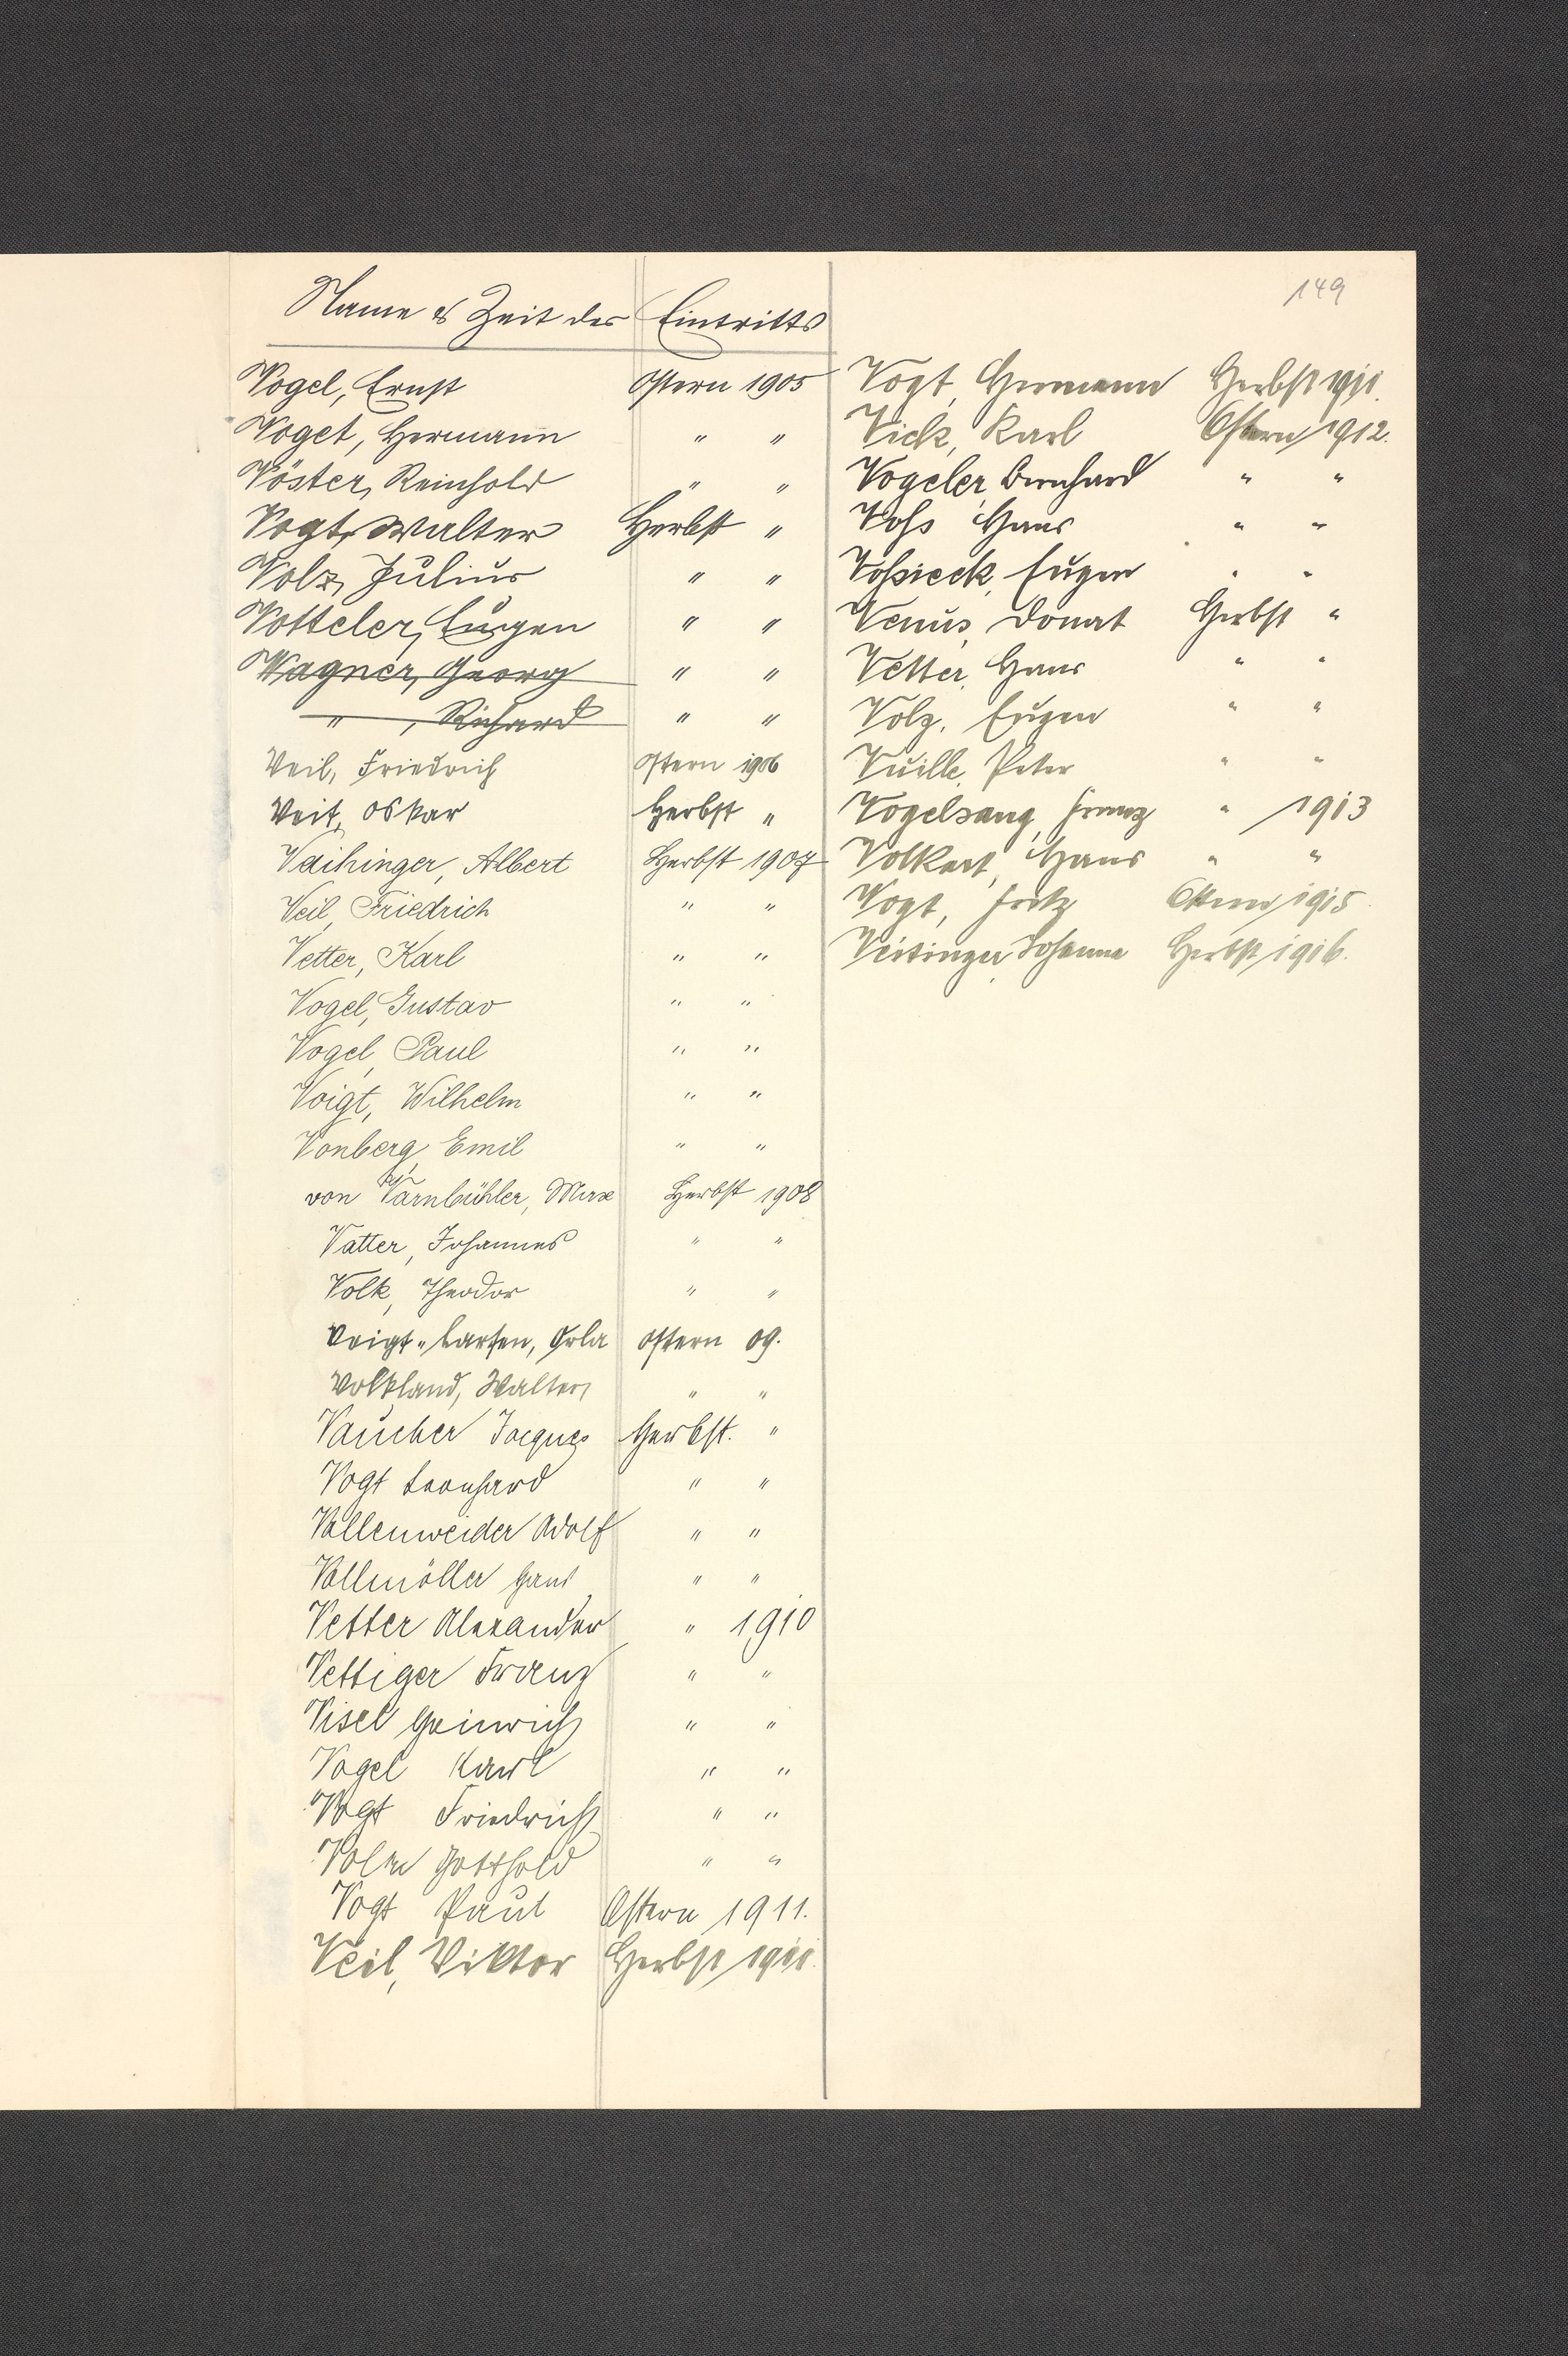 149
Name & Zeit des Eintritts
Vogel, Ernst Ostern 1905
Voget, Hermann " "
Vöster, Reinhold " "
Vogt, Walter Herbst "
Volz, Julius " "
Votteler, Eugen " "
Wagner, Georg " "
" , Richard " "
Veil, Friedrich Ostern 1906
Veit, Oskar Herbst "
Vaihinger, Albert Herbst 1907
Veil, Friedrich " "
Vetter, Karl " "
Vogel, Gustav " "
Vogel, Paul " "
Voigt, Wilhelm " "
Vonberg, Emil " "
von Varnbühler, Max Herbst 1908
Vatter, Johannes " "
Volk, Theodor " "
Voigt-Larsen, Orla Ostern 09.
Volkland, Walter " "
Vaucher Jacques Herbst. "
Vogt Leonhard " "
Vollenweider Adolf " "
Vollmöller Hans " "
Vetter Alexander " 1910
Vettiger Franz " "
Visel Heinrich " "
Vogel Karl " "
Vogt Friedrich " "
Gotthold " "
Vogt Paul Ostern 1911.
Veil, Viktor Herbst 1911.
Vogt, Hermann Herbst 1911.
Vick, Karl Ostern 1912.
Vogeler, Bernhard " "
Voß Hans " "
Voßieck, Eugen " "
Venus, Donat Herbst "
Vetter, Hans " "
Volz, Eugen " "
Vuille, Peter " "
Vogelsang, Franz " 1913
Volkart, Hans " "
Vogt, Fritz Ostern 1915
Johanna Herbst 1916.